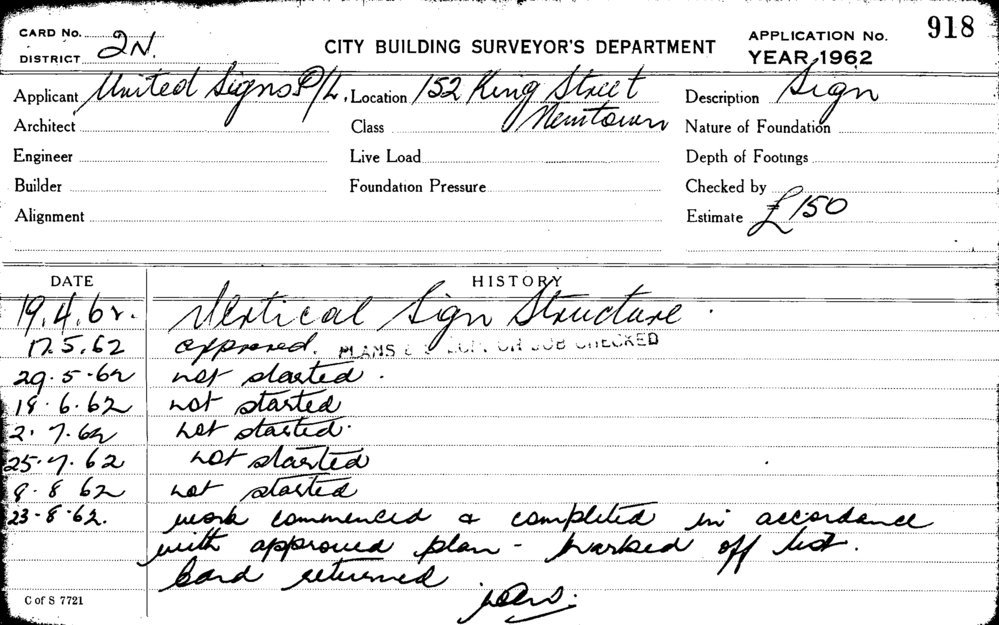 CARD No. 2N.
DISTRICT
CITY BUILDING SURVEYOR'S DEPARTMENT
APPLICATION No. 918
YEAR 1962
Applicant United Signs P/L. Location 152 King Street Newtown Description Sign
Architect Class Nature of Foundation
Engineer Live Load Depth of Footings
Builder Foundation Pressure Checked by
Alignment Estimate £150
DATE HISTORY
19.4.62. Vertical Sign Structure.
17.5.62 approved. PLANS JOB CHECKED
29.5.62 not started.
18.6.62 not started
2.7.62 not started.
25.7.62 not started
8.8.62 not started
23-8-62. work commenced & completed in accordance
with approved plan - marked off list.
Card returned
C of S 7721